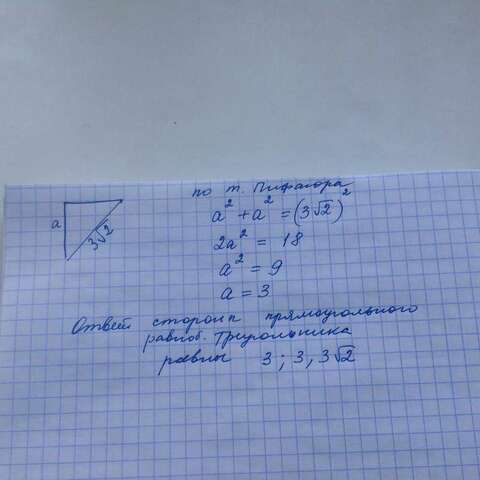 по т. Пифагора
a
3√2
a² + a² = (3√2)²
2a² = 18
a² = 9
a = 3
Ответ сторон прямоугольного
равноб. треугольника
равны 3; 3, 3√2